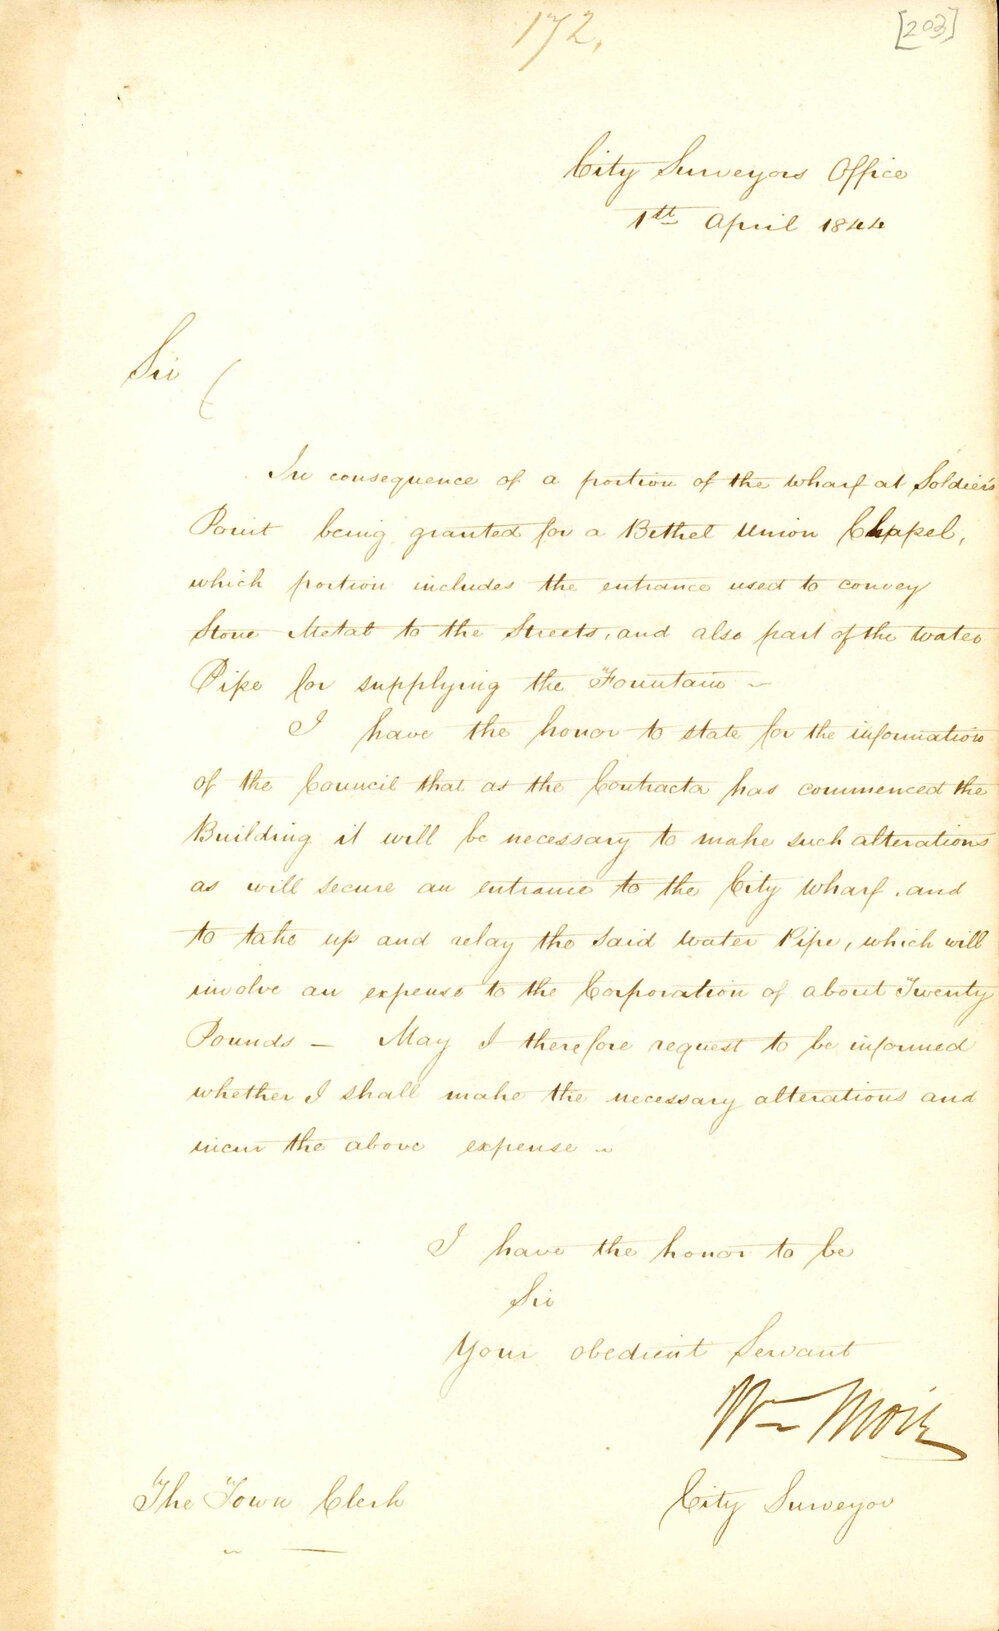 172.
[203]
City Surveyors Office
1st April 1844
Sir (
In consequence of a portion of the Wharf at Soldier's
Point being granted for a Bethel Union Chapel,
which portion includes the entrance used to convey
Stone Metal to the Streets, and also part of the Water
Pipe for supplying the Fountain ~
I have the honor to state for the information
of the Council that as the Contractor has commenced the
Building it will be necessary to make such alterations
as will secure an entrance to the City Wharf. and
to take up and relay the said Water Pipe, which will
involve an expense to the Corporation of about Twenty
Pounds — May I therefore request to be informed
whether I shall make the necessary alterations and
incur the above expense ~
I have the honor to be
Sir
Your obedient Servant
Wm Moir
The Town Clerk
City Surveyor